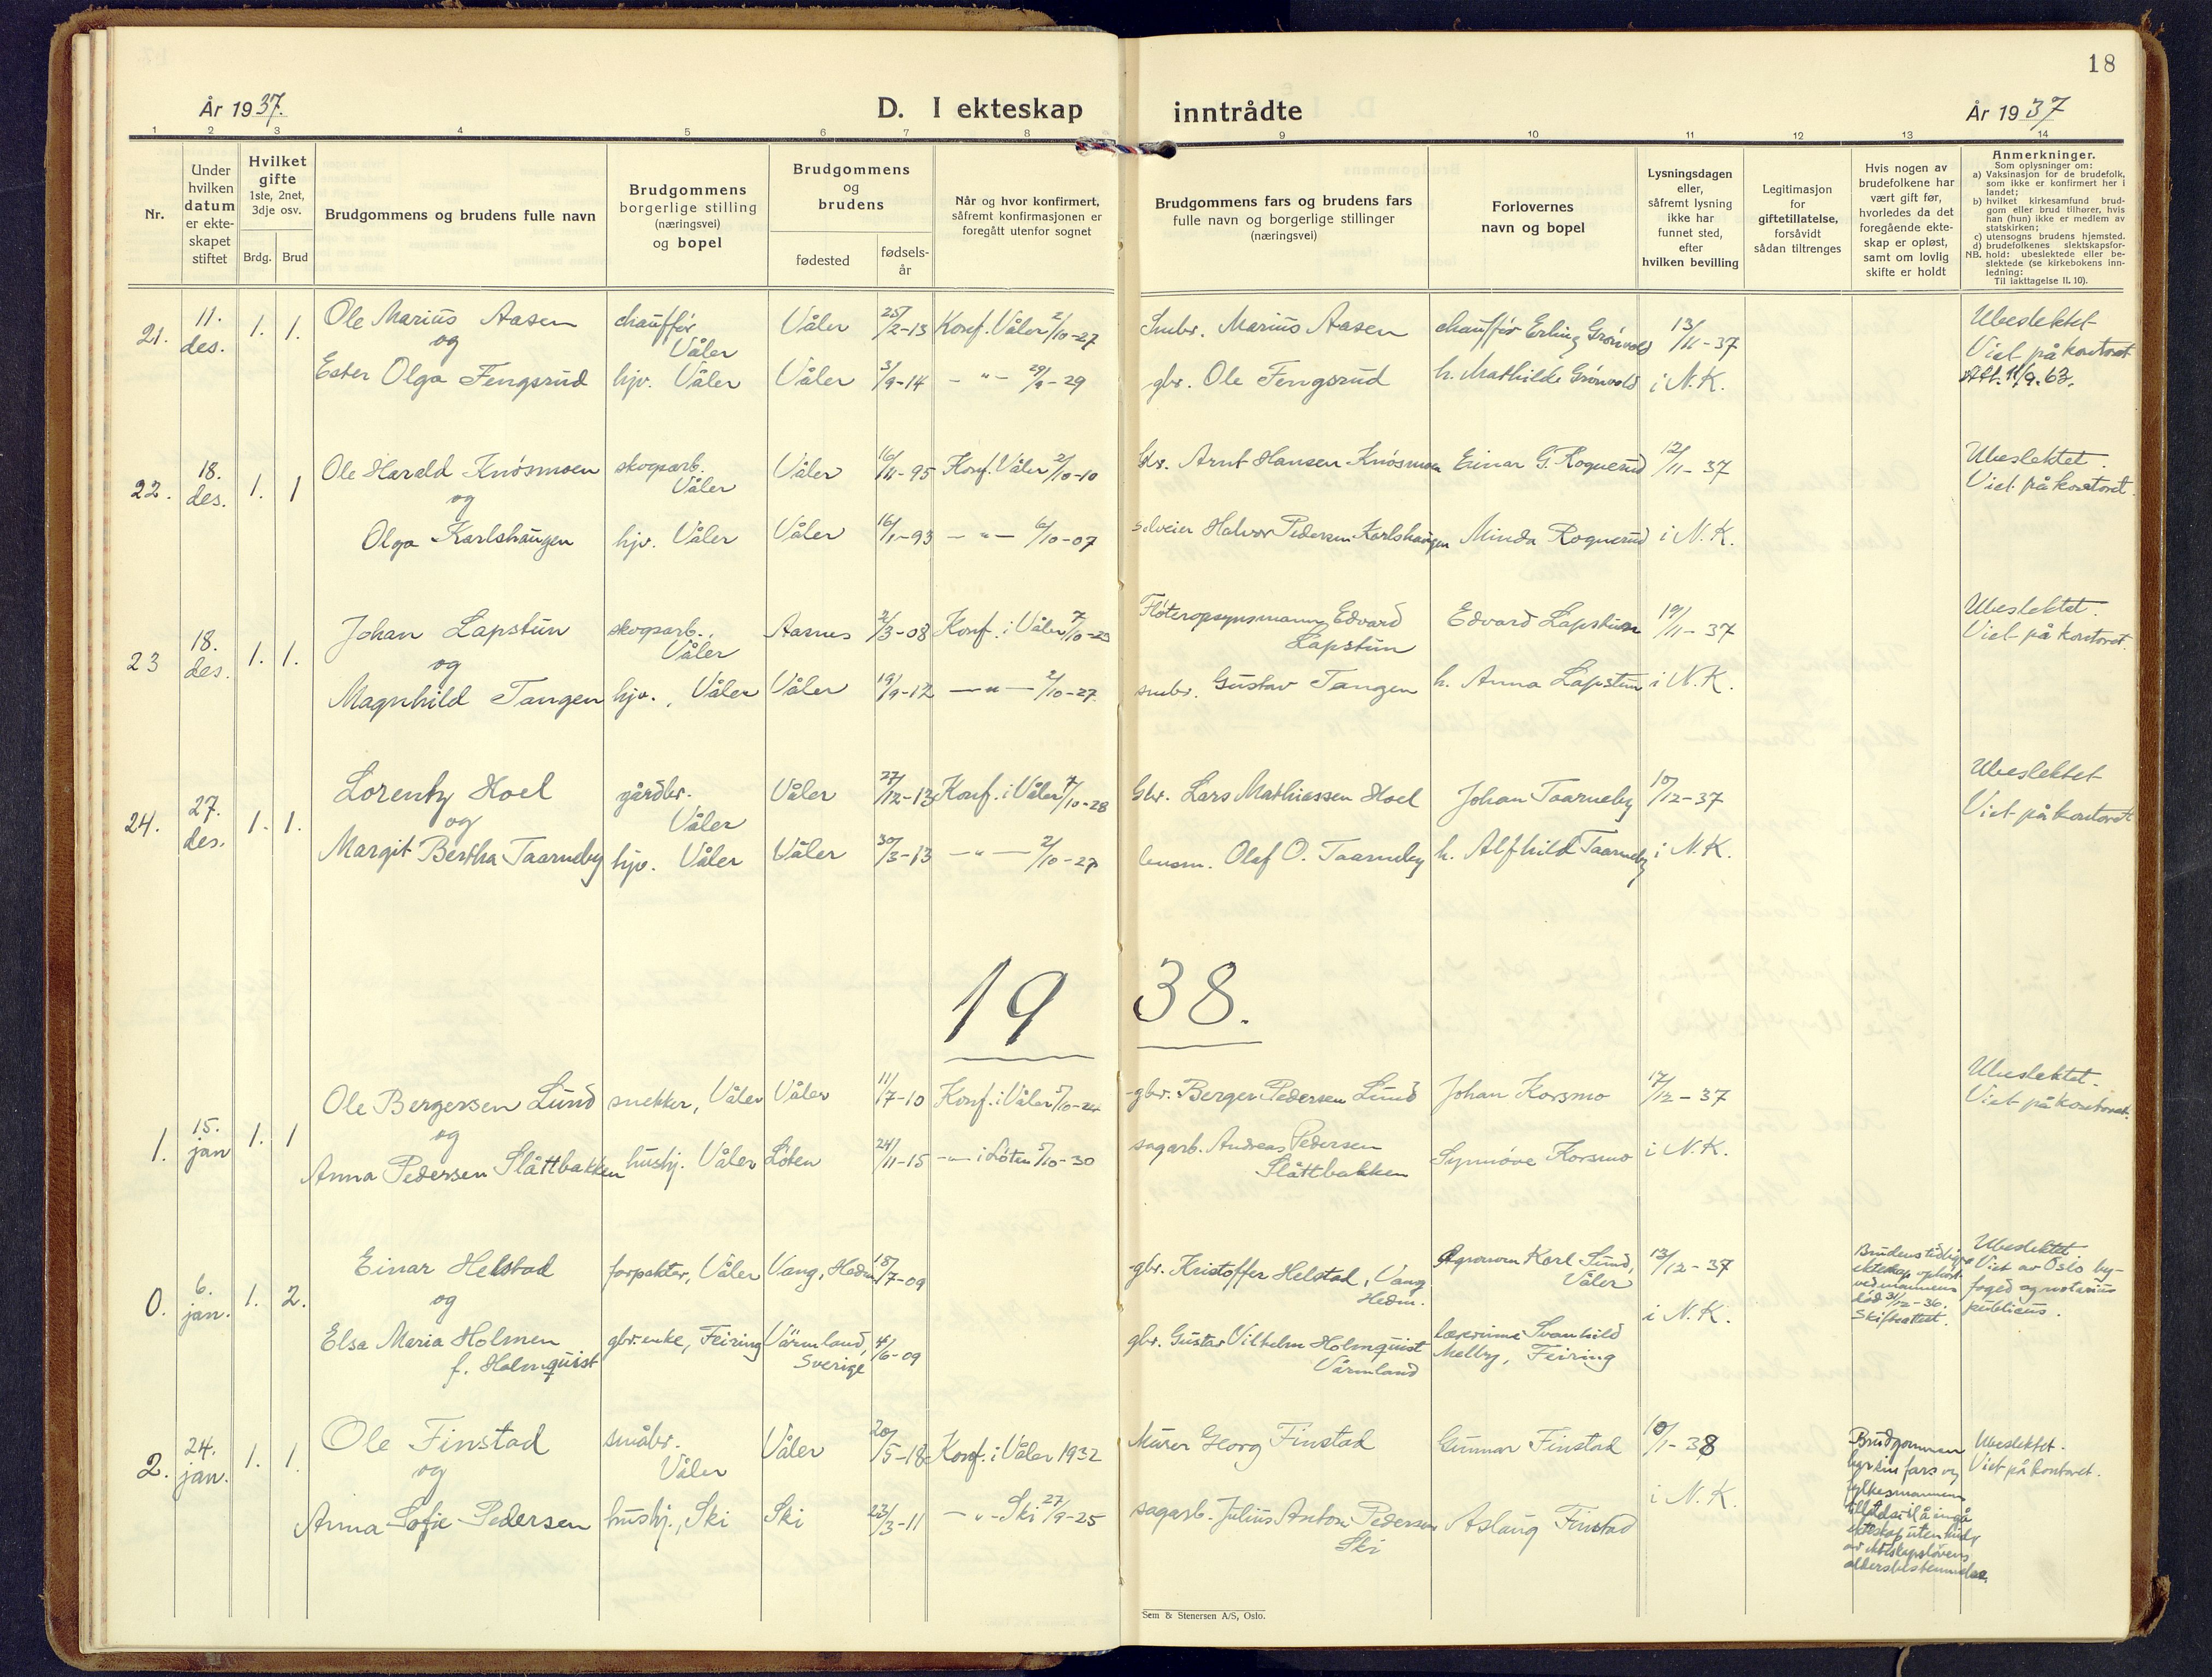 18
År 1937.
D. I ekteskap inntrådte
År 1937
1 2 3 4 5 6 7 8 9 10 11 12 13 14
Nr.
Under
hvilken
datum
er ekte-
skapet
stiftet
Hvilket
gifte
1ste, 2net,
3dje osv.
Brdg. Brud
Brudgommens og brudens fulle navn
Brudgommens
borgerlige stilling
(næringsvei)
og bopel
Brudgommens
og
brudens
fødested
fødsels-
år
Når og hvor konfirmert,
såfremt konfirmasjonen er
foregått utenfor sognet
Brudgommens fars og brudens fars
fulle navn og borgerlige stillinger
(næringsvei)
Forlovernes
navn og bopel
Lysningsdagen
eller,
såfremt lysning
ikke har
funnet sted,
efter
hvilken bevilling
Legitimasjon
for
giftetillatelse,
forsåvidt
sådan tiltrenges
Hvis nogen av
brudefolkene har
vært gift før,
hvorledes da det
foregående ekte-
skap er opløst,
samt om lovlig
skifte er holdt
Anmerkninger.
Som oplysninger om:
a) Vaksinasjon for de brudefolk,
som ikke er konfirmert her i
landet;
b) hvilket kirkesamfund brud-
gom eller brud tilhører, hvis
han (hun) ikke er medlem av
statskirken;
c) utensogns brudens hjemsted.
d) brudefolkenes slektskapsfor-
NB. hold: ubeslektede eller be-
slektede (se kirkebokens inn-
ledning:
Til iakttagelse II. 10).
21. 11. des. 1. 1.
Ole Marius Aasen chauffør Våler Våler 25/2-13 Konf. Våler 2/10-27 Smbr. Marius Aasen chauffør Erling Grønvold 13/11-37 Ubeslektet
og Viet på kontoret
Ester Olga Fengsrud hjv. Våler Våler 3/9-14 - " - 29/9-29 gbr. Ole Fengsrud h. Mathilde Grønvold i N.K. Att. 11/9.63.
22. 18. des. 1. 1
Ole Harald Knøsmoen skogsarb. Våler Våler 16/11-95 Konf. Våler 2/10-10 Arnt Hansen Knøsmoen Einar G. Rognerud 12/11-37 Ubeslektet.
og Viet på kontoret.
Olga Karlshaugen hjv. Våler Våler 16/1-93 - " - 6/10-07 selveier Halvor Pedersen Karlshaugen Minda Rognerud i N.K.
23 18. des. 1. 1.
Johan Lapstun skogsarb., Våler Aarnes 2/3-08 Konf. i Våler 7/10-23 Fløteropsynsmann Edvard Lapstun Edvard Lapstun 19/11-37 Ubeslektet.
og Viet på kontoret.
Magnhild Tangen hjv., Våler Våler 19/9-12 - " - 2/10-27 smbr. Gustav Tangen h. Anna Lapstun i N.K.
24. 27. des. 1. 1.
Lorentz Hoel gårdbr. Våler Våler 27/12-13 Konf. i Våler 7/10-28 Gbr. Lars Mathiassen Hoel Johan Taarneby 10/12-37 Ubeslektet
og Viet på kontoret
Margit Bertha Taarneby hjv. Våler Våler 30/3-13 - " - 2/10-27 lensm. Olaf O. Taarneby h. Alfhild Taarneby i N.K.
19 38.
1. 15. jan 1. 1
Ole Bergersen Lund snekker, Våler Våler 11/7-10 Konf. i Våler 5/10-24 gbr. Berger Pedersen Lund Johan Korsmo 17/12-37 Ubeslektet.
og Viet på kontoret.
Anna Pedersen Slåttbakken hushj. Våler Løten 24/11-15 - " - i Løten 5/10-30 sagarb. Andreas Pedersen Slåttbakken Synnøve Korsmo i N.K.
0. 6. jan. 1. 2.
Einar Helstad forpakter, Våler Vang, Hedm. 18/7-09 gbr. Kristoffer Helstad, Vang Hedm. Agronom Karl Lund, Våler 13/12-37
og
Elsa Maria Holmen f. Holmquist gbr.enke, Feiring Värmland, Sverige 4/6-09 gbr. Gustav Vilhelm Holmquist Värmland lærerinne Svanhild Melby, Feiring i N.K.
Brudens tidligere
ekteskap ophørt
ved mannens
død 31/12-36.
Skifteattest.
Ubeslektet
Viet av Oslo by-
foged og notarius
publicus.
2. 24. jan. 1. 1.
Ole Finstad småbr. Våler Våler 20/5-18 Konf. i Våler 1932 Murer Georg Finstad Gunnar Finstad 10/1-38
og
Anna Sofie Pedersen hushj., Ski Ski 23/3-11 - " - Ski 27/9-25 sagarb. Julius Anton Pedersen Ski Aslaug Finstad i N.K.
Brudgommen
har sin fars og
fylkesmannens
tillatelse til å inngå
ekteskap uten hinder
av ekteskapslovens
aldersbestemmelse.
Ubeslektet.
Viet på kontoret.
Sem & Stenersen A/S, Oslo.